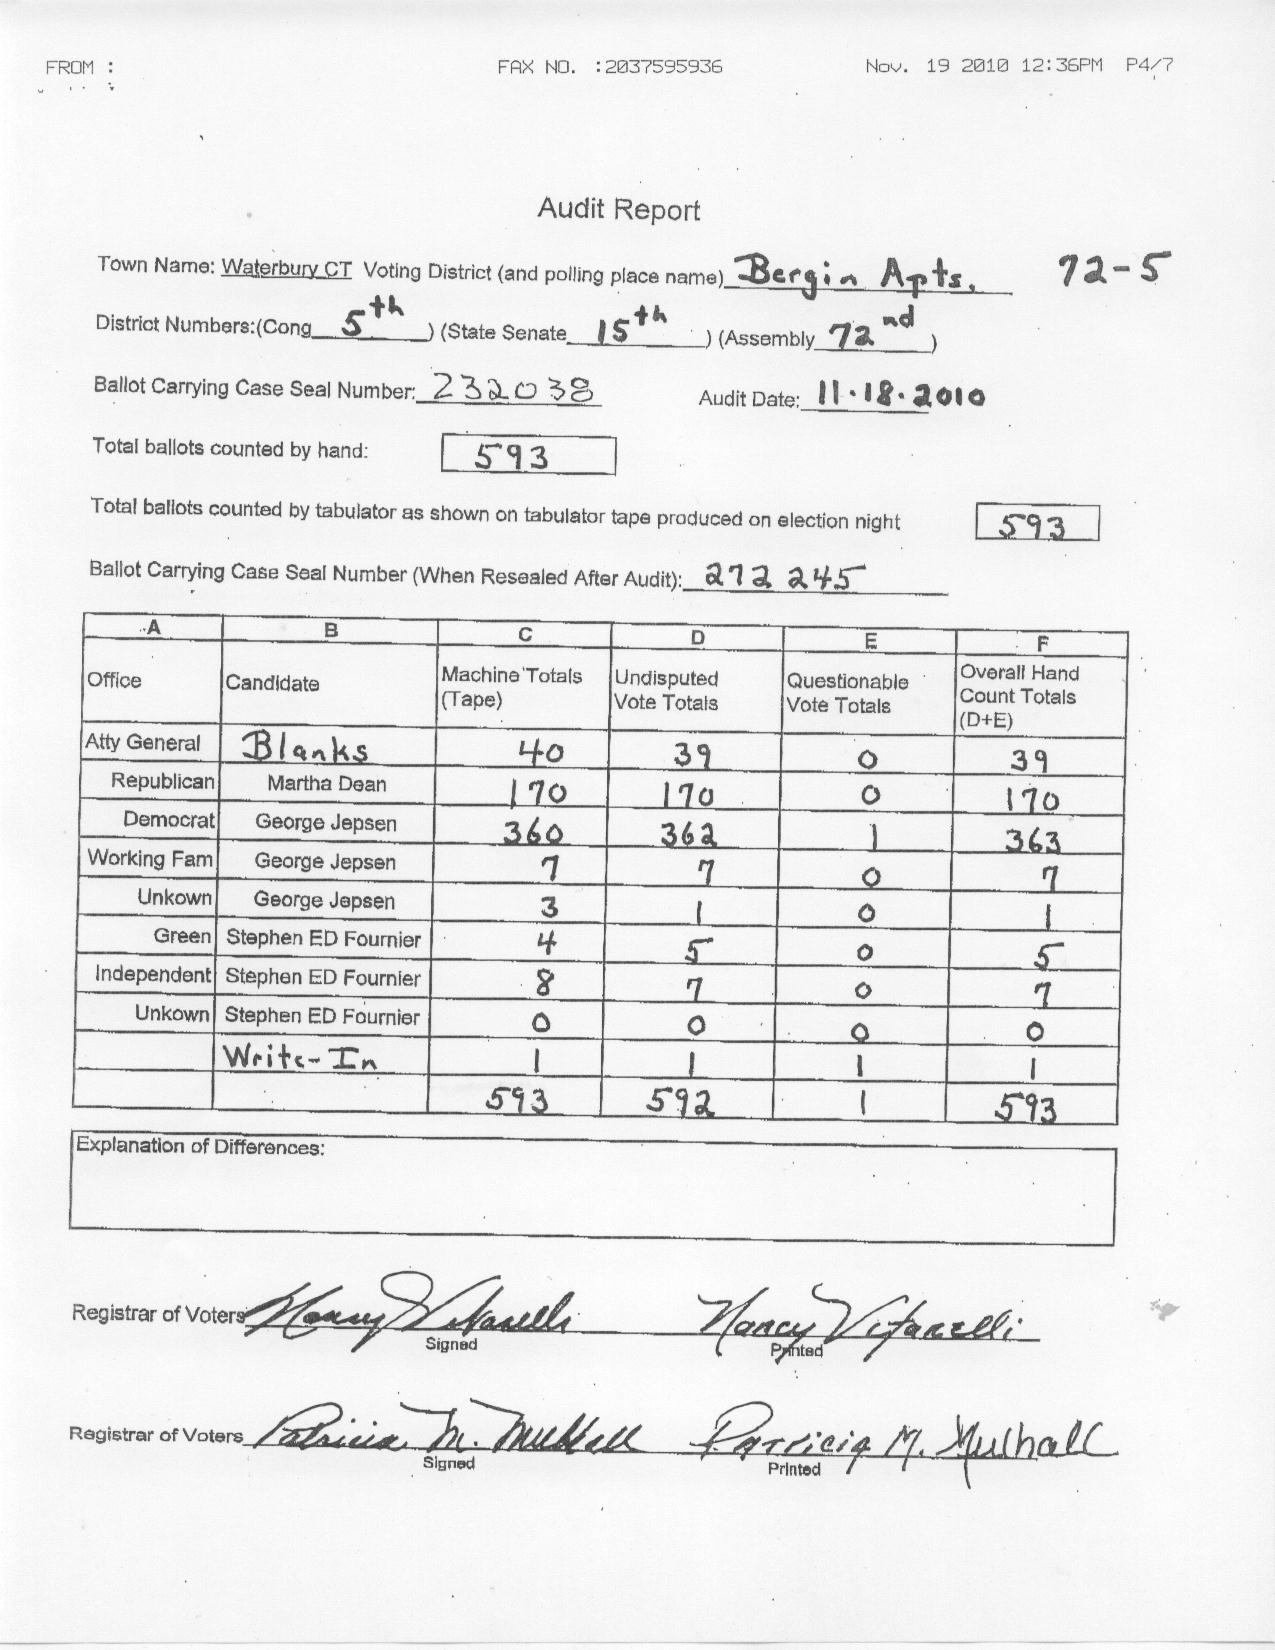 FROM : FAX NO. :2037595936 Nov. 19 2010 12:36PM P4/7
Audit Report
Town Name: Waterbury CT Voting District (and polling place name) Bergin Apts. 72-5
District Numbers:(Cong 5th ) (State Senate 15th ) (Assembly 72nd )
Ballot Carrying Case Seal Number: 232038 Audit Date: 11.18.2010
Total ballots counted by hand: 593
Total ballots counted by tabulator as shown on tabulator tape produced on election night 593
Ballot Carrying Case Seal Number (When Resealed After Audit): 272 245
A B C D E F
Office Candidate Machine Totals (Tape) Undisputed Vote Totals Questionable Vote Totals Overall Hand Count Totals (D+E)
Atty General Blanks 40 39 0 39
Republican Martha Dean 170 170 0 170
Democrat George Jepsen 360 362 1 363
Working Fam George Jepsen 7 7 0 7
Unkown George Jepsen 3 1 0 1
Green Stephen ED Fournier 4 5 0 5
Independent Stephen ED Fournier 8 7 0 7
Unkown Stephen ED Fournier 0 0 0 0
Write-In 1 1 1 1
593 592 1 593
Explanation of Differences:
Registrar of Voters Nancy Vitarelli Nancy Vitarelli
Signed Printed
Registrar of Voters Patricia M. Mulhall Patricia M. Mulhall
Signed Printed